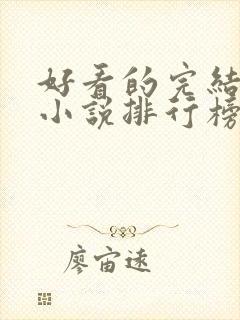 好看的完結
小說排行榜
廖宙遠